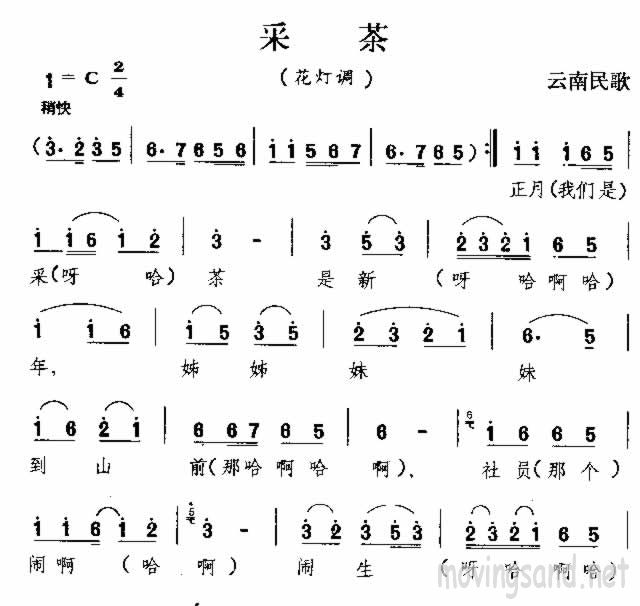 采 茶
1 = C 2/4 (花灯调) 云南民歌
稍快
(3· 2 3 5 | 6· 7 6 5 6 | 1 1 5 6 7 | 6· 7 6 5) :‖ 1 1 1 6 5 |
正月(我们是)
1 1 6 1 2 | 3 - | 3 5 3 | 2 3 2 1 6 5 |
采(呀 哈)茶 是新 (呀 哈啊哈)
1 1 6 | 1 5 3 5 | 2 3 2 1 | 6· 5 |
年, 姊 姊 妹 妹
1 6 2 1 | 6 6 7 6 5 | 6 - | 6 1 6 6 5 |
到 山 前(那哈啊哈 啊)、 社员(那个)
1 1 6 1 2 | 5 3 - | 3 2 3 5 3 | 2 3 2 1 6 5 |
闹啊 (哈 啊) 闹 生 (呀 哈啊哈)
movingsand.net